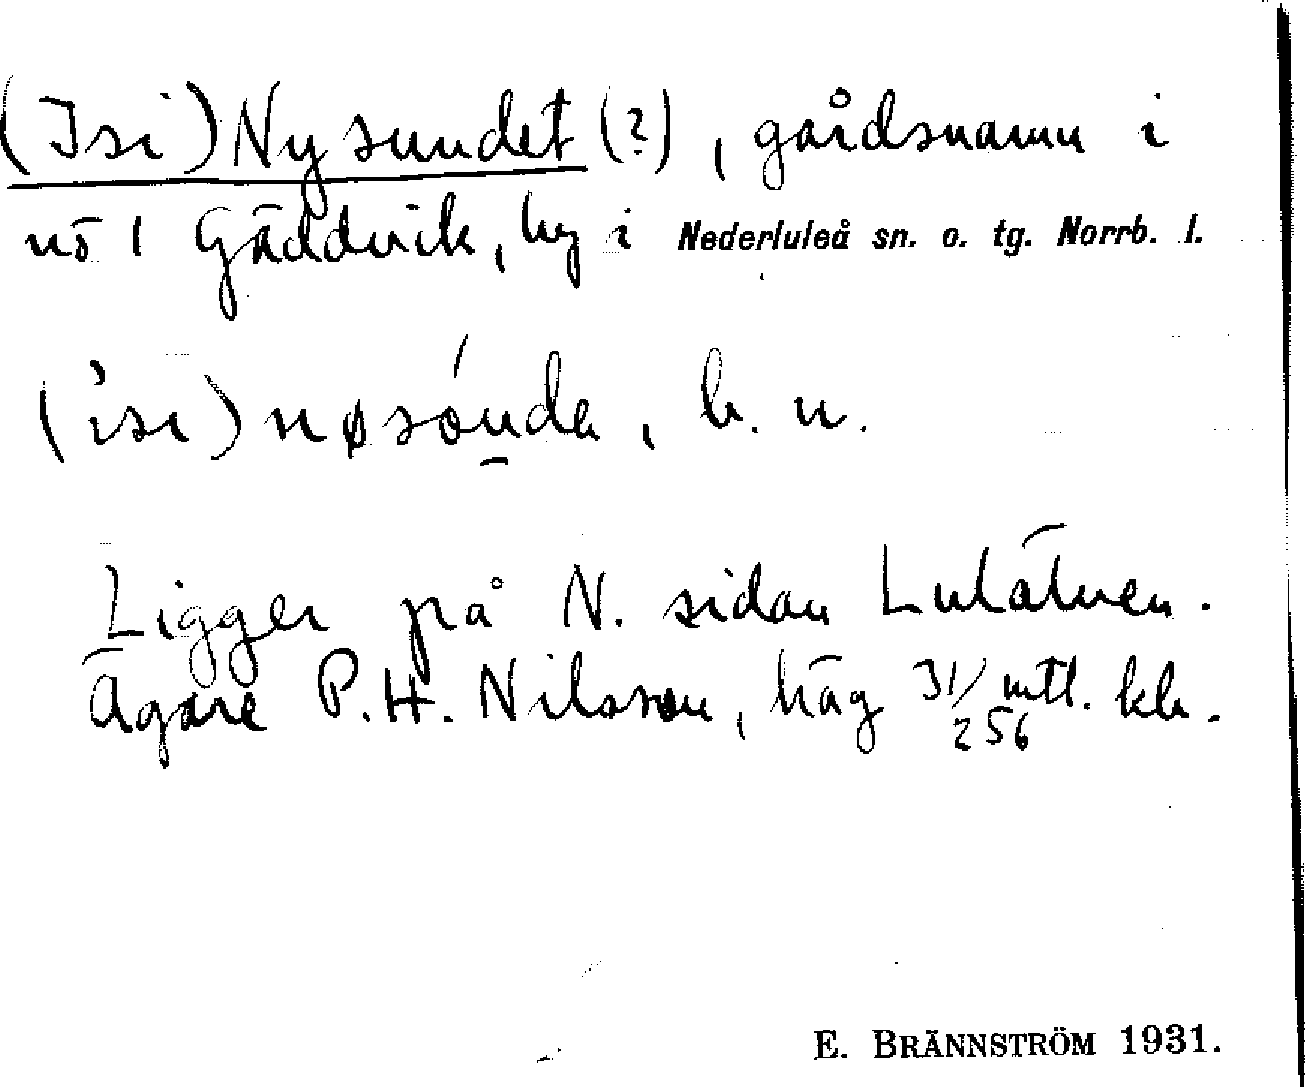 (Isi) Nysundet (?), gårdsnamn i
nō 1 Gäddvik, by i Nederluleå sn. o. tg. Norrb. l.
(ìsi) nøsónda, b. n.
Ligger på N. sidan Luleälven.
Ägare P. H. Nilsson, häg 31/256 mtl. kr.
E. BRÄNNSTRÖM 1931.